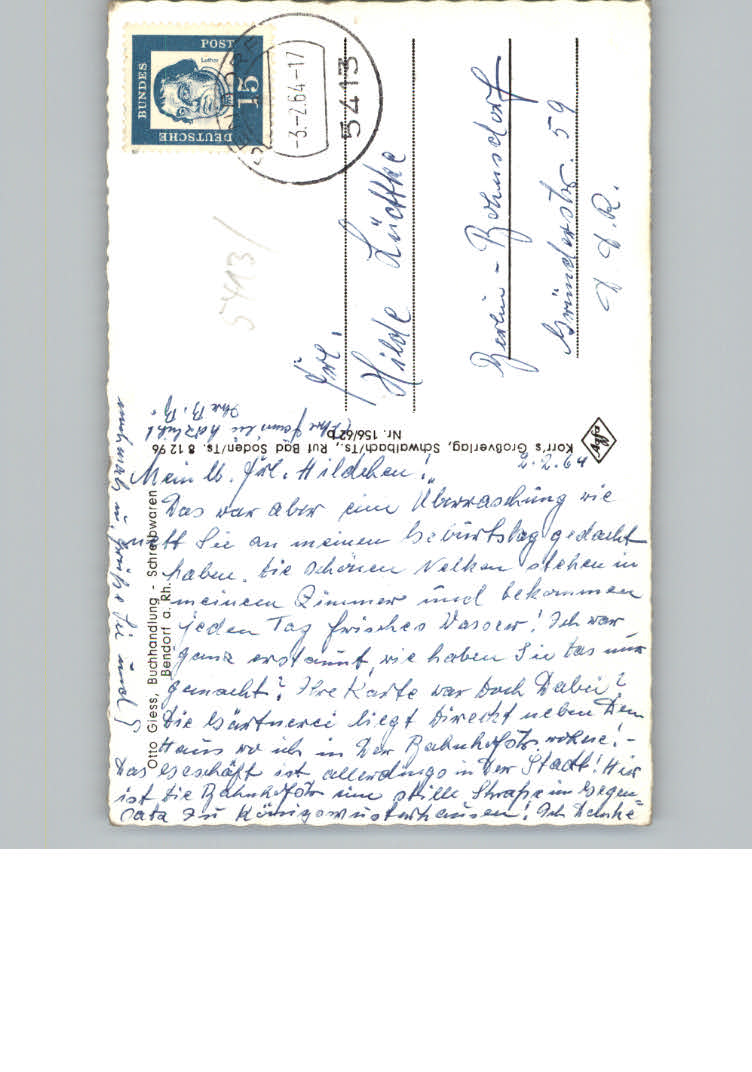 DEUTSCHE
BUNDES
POST
15
Luther
BENDORF
-3.-2.64-17
5413
5413/
Frl.
Hilde Lüdtke
Berlin-Bohnsdorf
Gründerstr. 59
D.D.R.
Korr's Großverlag, Schwalbach/Ts., Ruf Bad Soden/Ts. 8 12 96
Nr. 156/62 b
Otto Giess, Buchhandlung - Schreibwaren
Bendorf a. Rh.
2.2.64
Mein lb. Frl. Hildchen!
Das war aber eine Überraschung wie
nett Sie an meinen Geburtstag gedacht
haben. Die schönen Nelken stehen in
meinem Zimmer und bekommen
jeden Tag frisches Wasser! Ich war
ganz erstaunt, wie haben Sie das nur
gemacht? Ihre Karte war doch dabei?
Die Gärtnerei liegt direckt neben dem
Haus wo ich in der Bahnhofstr. wohne! -
Das Geschäft ist allerdings in der Stadt! Hier
ist die Bahnhofstr eine stille Straße im Gegen
satz zu Königswusterhausen! Ich danke
nochmals u. grüße Sie und
Ihre Familie herzlichst
Ihre B. B.